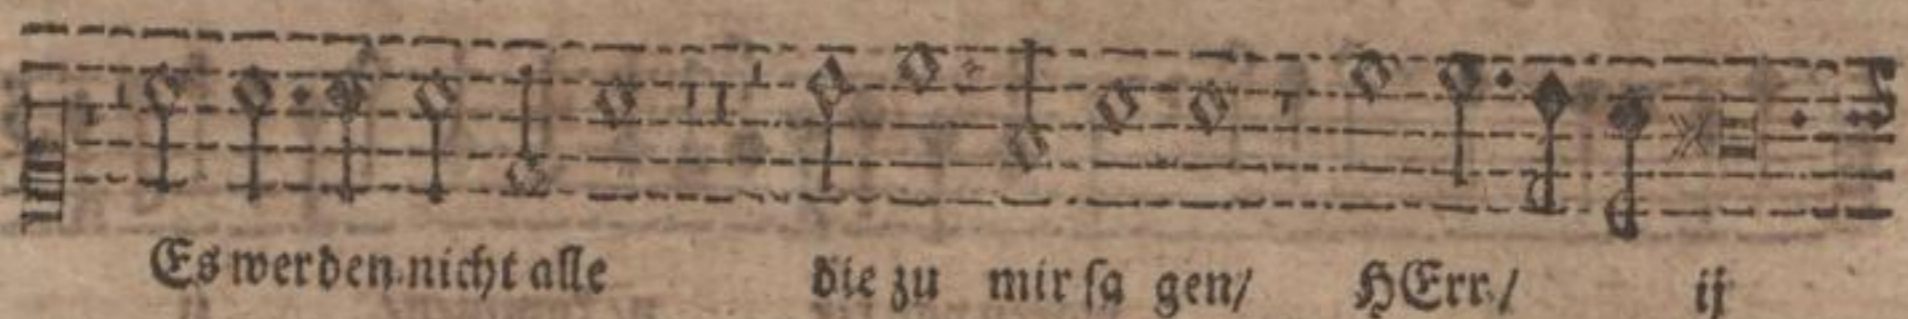 Es werden nicht alle die zu mir ſa gen/ HErr/ ij